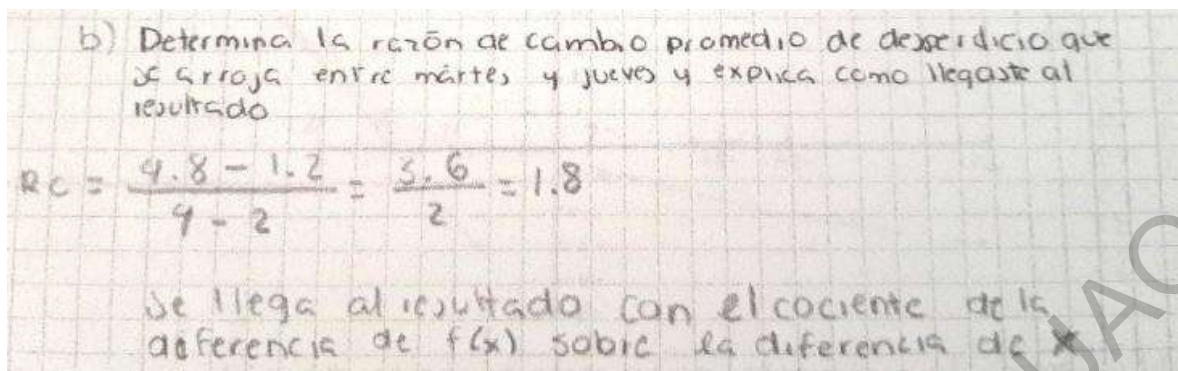 b) Determina la razón de cambio promedio de desperdicio que
se arroja entre mártes y jueves y explica como llegaste al
resultado
RC = 4.8 - 1.2 / 4 - 2 = 3.6 / 2 = 1.8
Se llega al resultado con el cociente de la
deferencia de f(x) sobre la diferencia de x
UAQ